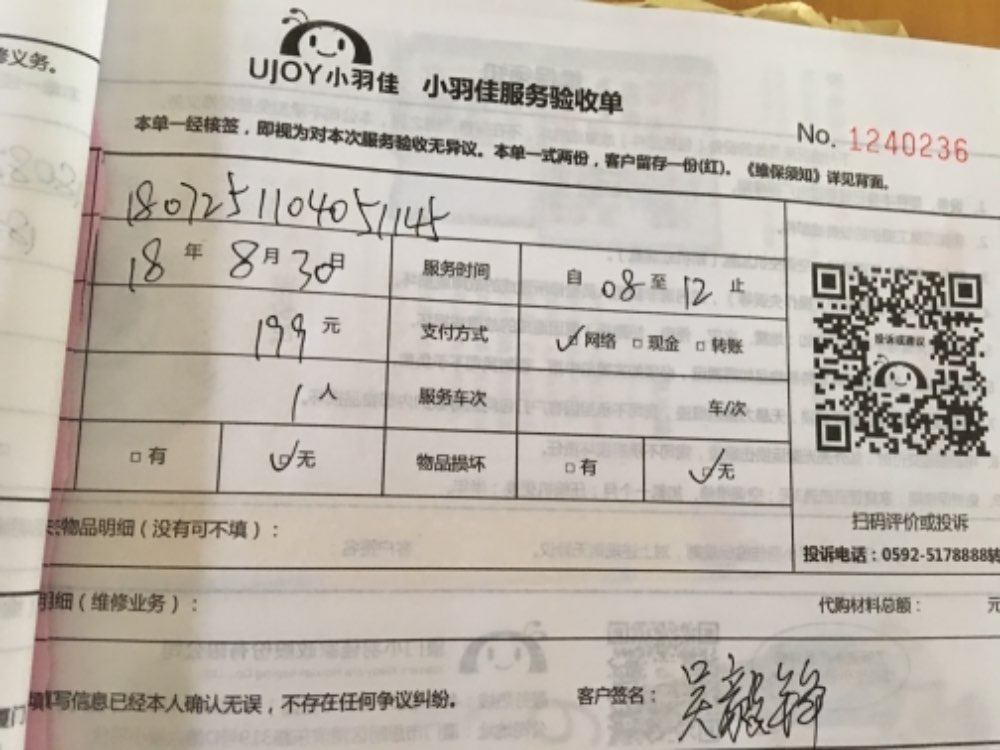 修义务。
UJOY小羽佳 小羽佳服务验收单
No. 1240236
本单一经核签，即视为对本次服务验收无异议。本单一式两份，客户留存一份(红)。《维保须知》详见背面。
1807251104051145
18 年 8 月 30 日 服务时间 自 08 至 12 止
199 元 支付方式 ☑网络 □现金 □转账
1 人 服务车次 车/次
□有 ☑无 物品损坏 □有 ☑无
投诉或建议
扫码评价或投诉
投诉电话：0592-5178888转
物品明细（没有可不填）：
明细（维修业务）： 代购材料总额： 元
填写信息已经本人确认无误，不存在任何争议纠纷。 客户签名：